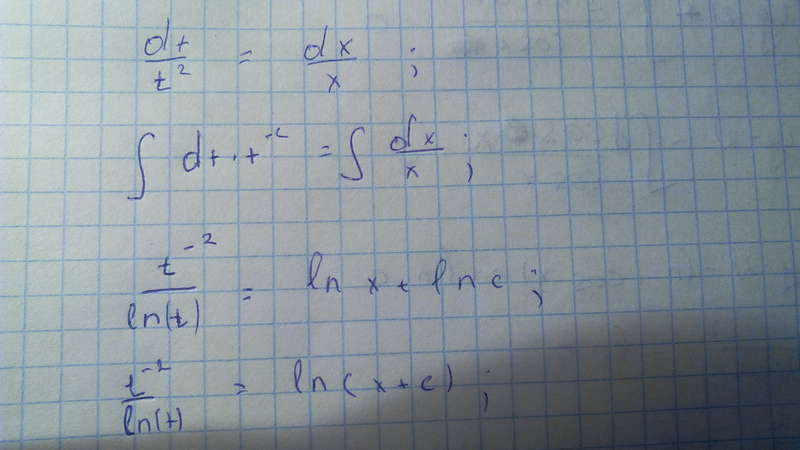 dt/t² = dx/x ;
∫ dt · t⁻² = ∫ dx/x ;
t⁻²/ln(t) = ln x + ln c ;
t⁻²/ln(t) = ln(x+c) ;